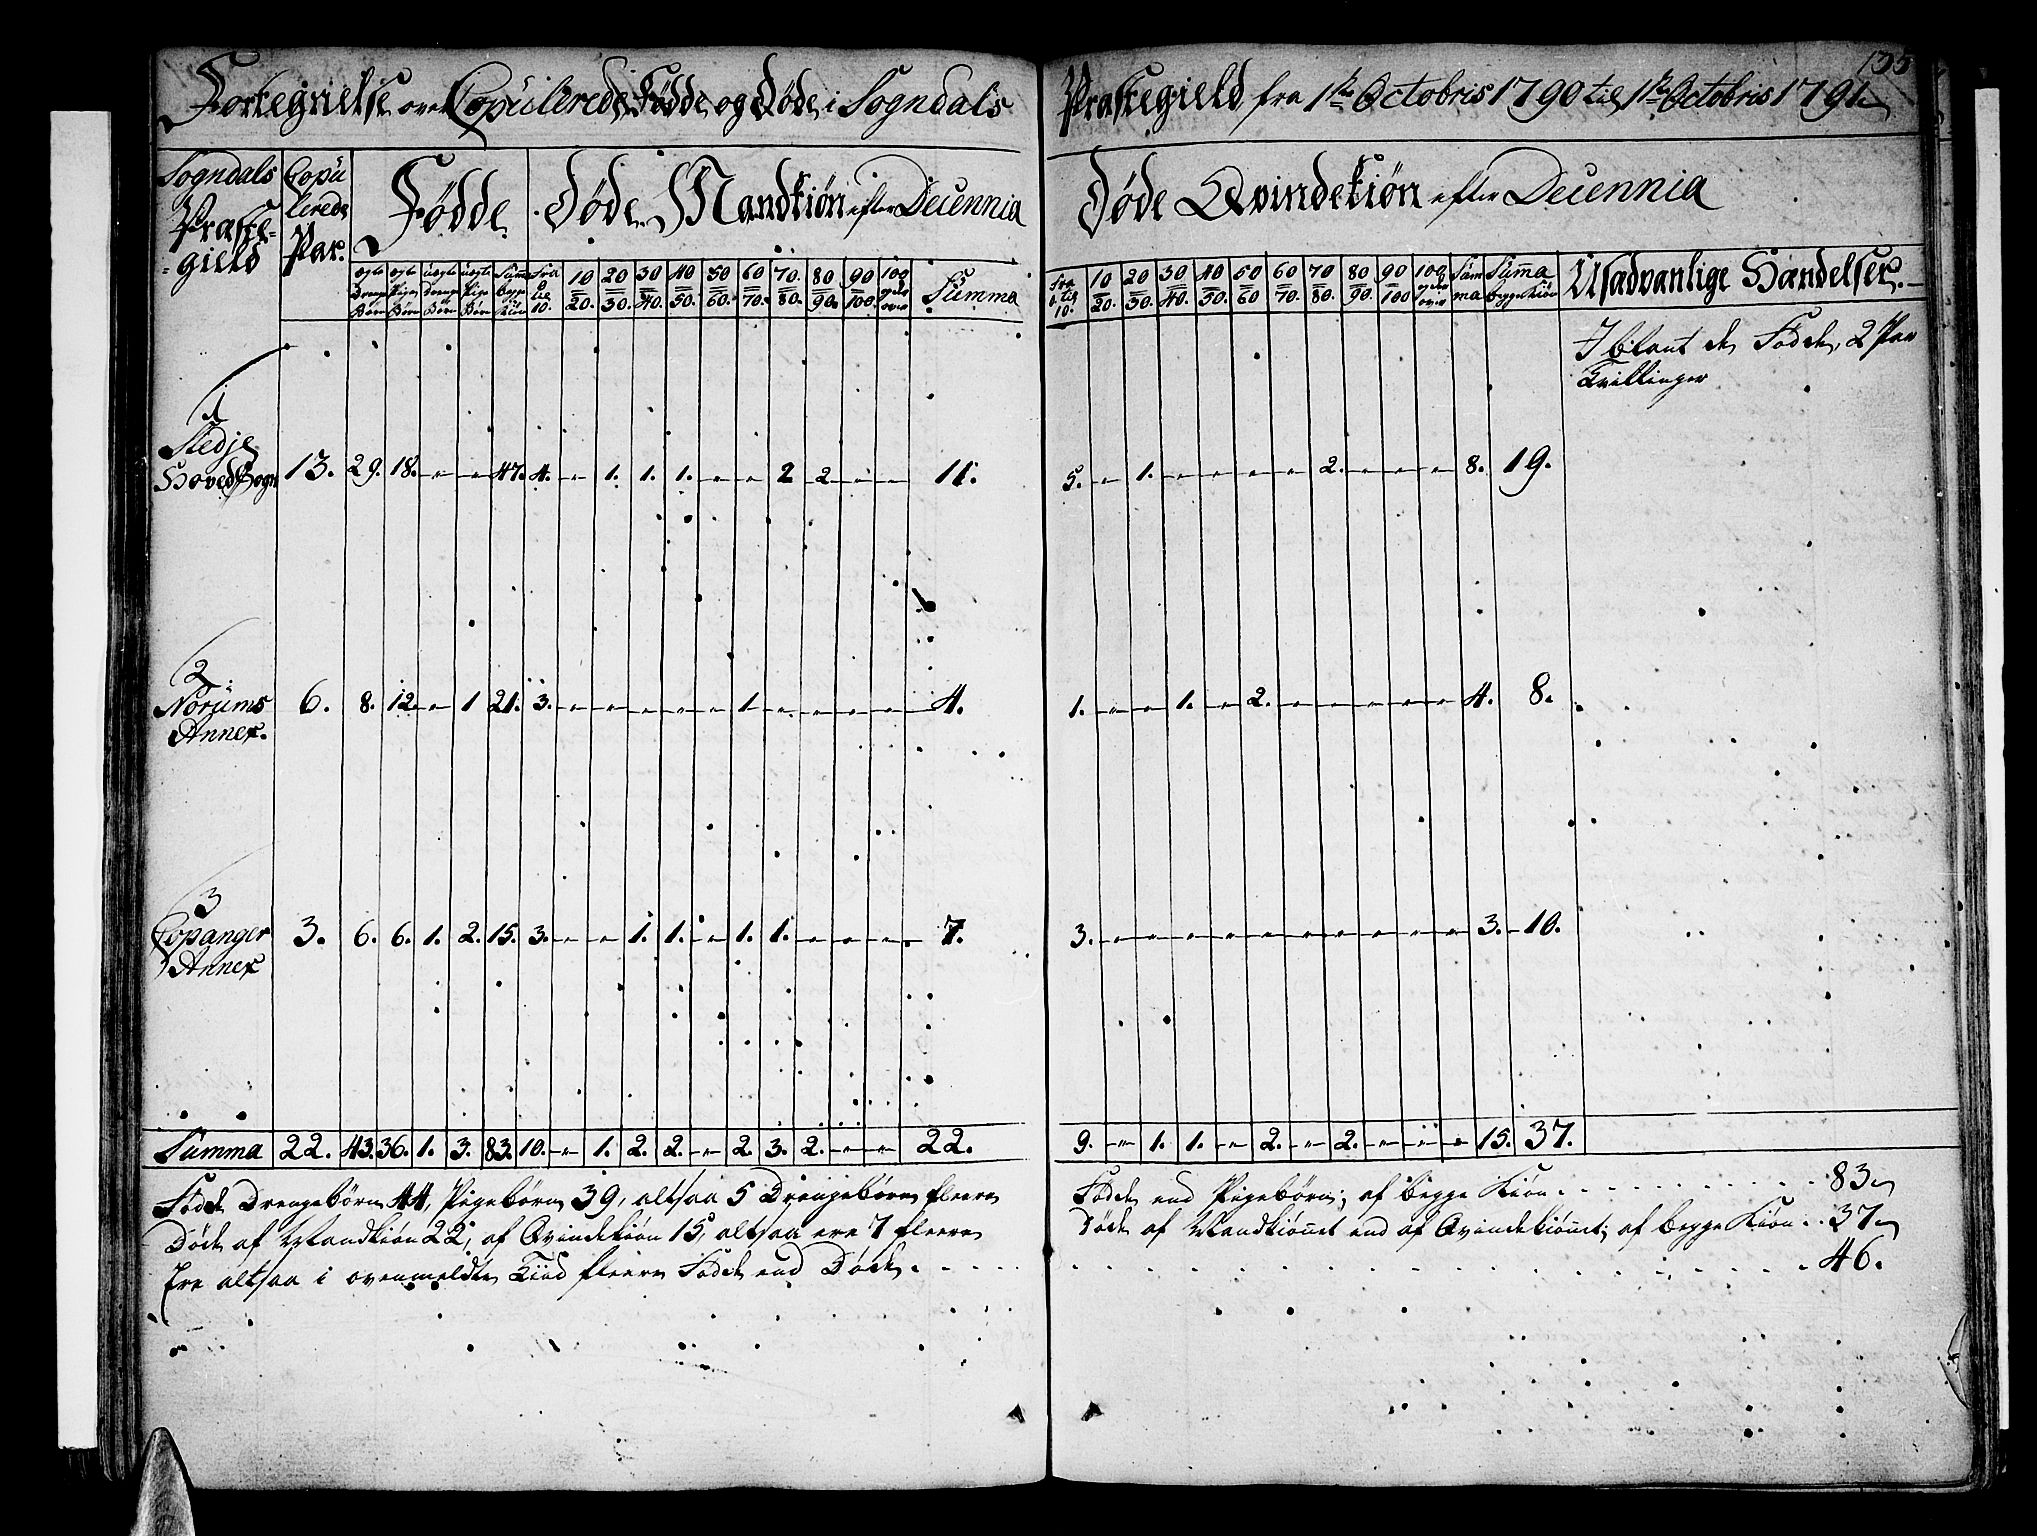 135
Fortegnelse over Copulerede, Födde og Döde i Sogndals Præstegield fra 1ste Octobris 1790 til 1ste Octobris 1791.
Sogndals Præste-gield
Copu lerede Par.
Födde
Döde Mandkiön efter Decennia
Döde Qvindekiön efter Decennia
ægte Drenge Börn | ægte Pige Börn | uægte Drenge Börn | uægte Pige Börn | Summa begge Kiön | fra 0 til 10. | 10/20. | 20/30. | 30/40. | 40/50. | 50/60. | 60/70. | 70/80. | 80/90. | 90/100. | 100 og der over | Summa
fra 0 til 10. | 10/20. | 20/30. | 30/40. | 40/50. | 50/60 | 60/70. | 70/80. | 80/90. | 90/100 | 100 og der over | Summa | Summa begge Kiön | Usædvanlige Hændelser.
Iblant de Födde, 2 Par
Tvillinger
1
Stedje
Hoved Sogn 13. 29. 18. - - 47. 4. - 1. 1. 1. - - 2 2 - - 11. 5. - 1. - - - - 2. - - - 8. 19.
2
Norums
Annex. 6. 8. 12. - 1 21. 3. - - - - - 1. - - - - 4. 1. - - 1. - 2. - - - - - 4. 8.
3
Copanger
Annex 3. 6. 6. 1. 2. 15. 3. - - 1. 1. - 1. 1. - - - 7. 3. - - - - - - - - - - 3. 10.
Summa 22. 43. 36. 1. 3. 83. 10. - 1. 2. 2. - 2. 3. 2. - - 22. 9. - 1. 1. - 2. - 2. - - - 15. 37.
Födde Drengebörn 44, Pigebörn 39, altsaa 5 Drengebörn fleere
Födde end Pigebörn; af begge Kiön . . . 83
Döde af Mandkiön 22, af Qvindekiön 15, altsaa ere 7 fleere
Döde af Mandkiönnet end af Qvindekiönnet; af begge Kiön . . 37
Ere altsaa i ovenmeldte Tiid fleere Födde end Döde . . . 46.